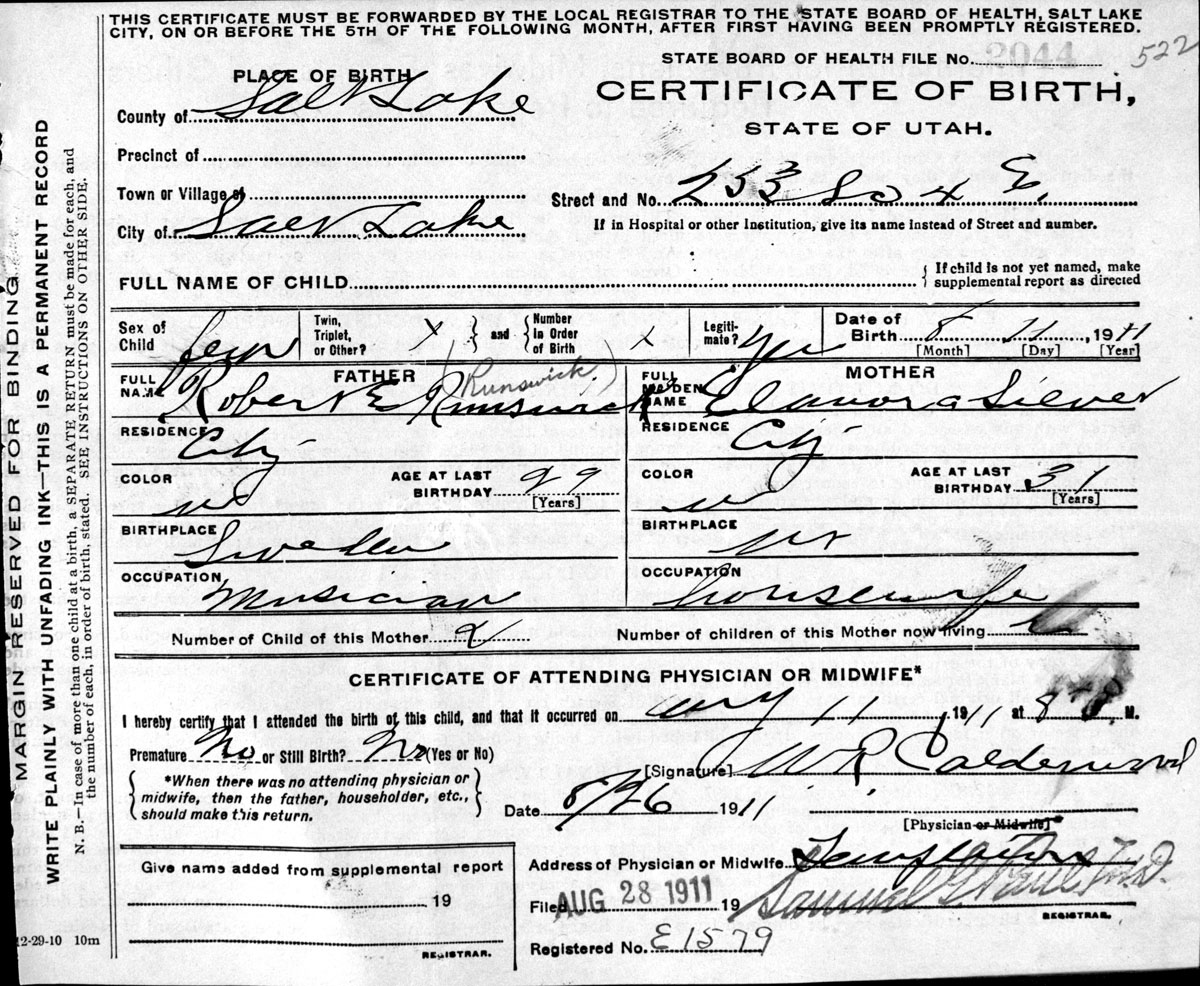 THIS CERTIFICATE MUST BE FORWARDED BY THE LOCAL REGISTRAR TO THE STATE BOARD OF HEALTH, SALT LAKE
CITY, ON OR BEFORE THE 5TH OF THE FOLLOWING MONTH, AFTER FIRST HAVING BEEN PROMPTLY REGISTERED.
STATE BOARD OF HEALTH FILE No. 2044 522
PLACE OF BIRTH
CERTIFICATE OF BIRTH,
County of Salt Lake
STATE OF UTAH.
Precinct of
Town or Village of
Street and No. 253 So 4 E.
City of Salt Lake
If in Hospital or other Institution, give its name instead of Street and number.
FULL NAME OF CHILD
If child is not yet named, make
supplemental report as directed
Sex of Child Twin, Triplet, or Other? X and Number in Order of Birth X Legiti- mate? yes Date of Birth 8 11 1911
[Month] [Day] [Year]
FATHER (Runswick)
MOTHER
FULL NAME Robert E Runswick
FULL MAIDEN NAME Elanora Silver
RESIDENCE City
RESIDENCE City
COLOR W AGE AT LAST BIRTHDAY 29 [Years]
COLOR W AGE AT LAST BIRTHDAY 31 [Years]
BIRTHPLACE Sweden
BIRTHPLACE Ut
OCCUPATION Musician
OCCUPATION housewife
Number of Child of this Mother 2 Number of children of this Mother now living
CERTIFICATE OF ATTENDING PHYSICIAN OR MIDWIFE*
I hereby certify that I attended the birth of this child, and that it occurred on Aug 11, 1911 at 8 M.
Premature No or Still Birth? No (Yes or No)
[Signature] W R Calderwood
*When there was no attending physician or
midwife, then the father, householder, etc.,
should make this return.
Date 8/26 1911
[Physician or Midwife]*
Address of Physician or Midwife Templeton
Give name added from supplemental report
19
REGISTRAR.
Filed AUG 28 1911 19 Samuel G Paul M.D.
REGISTRAR.
Registered No. E1579
12-29-10 10m
MARGIN RESERVED FOR BINDING
WRITE PLAINLY WITH UNFADING INK—THIS IS A PERMANENT RECORD
N. B.—In case of more than one child at a birth, a SEPARATE RETURN must be made for each, and
the number of each, in order of birth, stated. SEE INSTRUCTIONS ON OTHER SIDE.